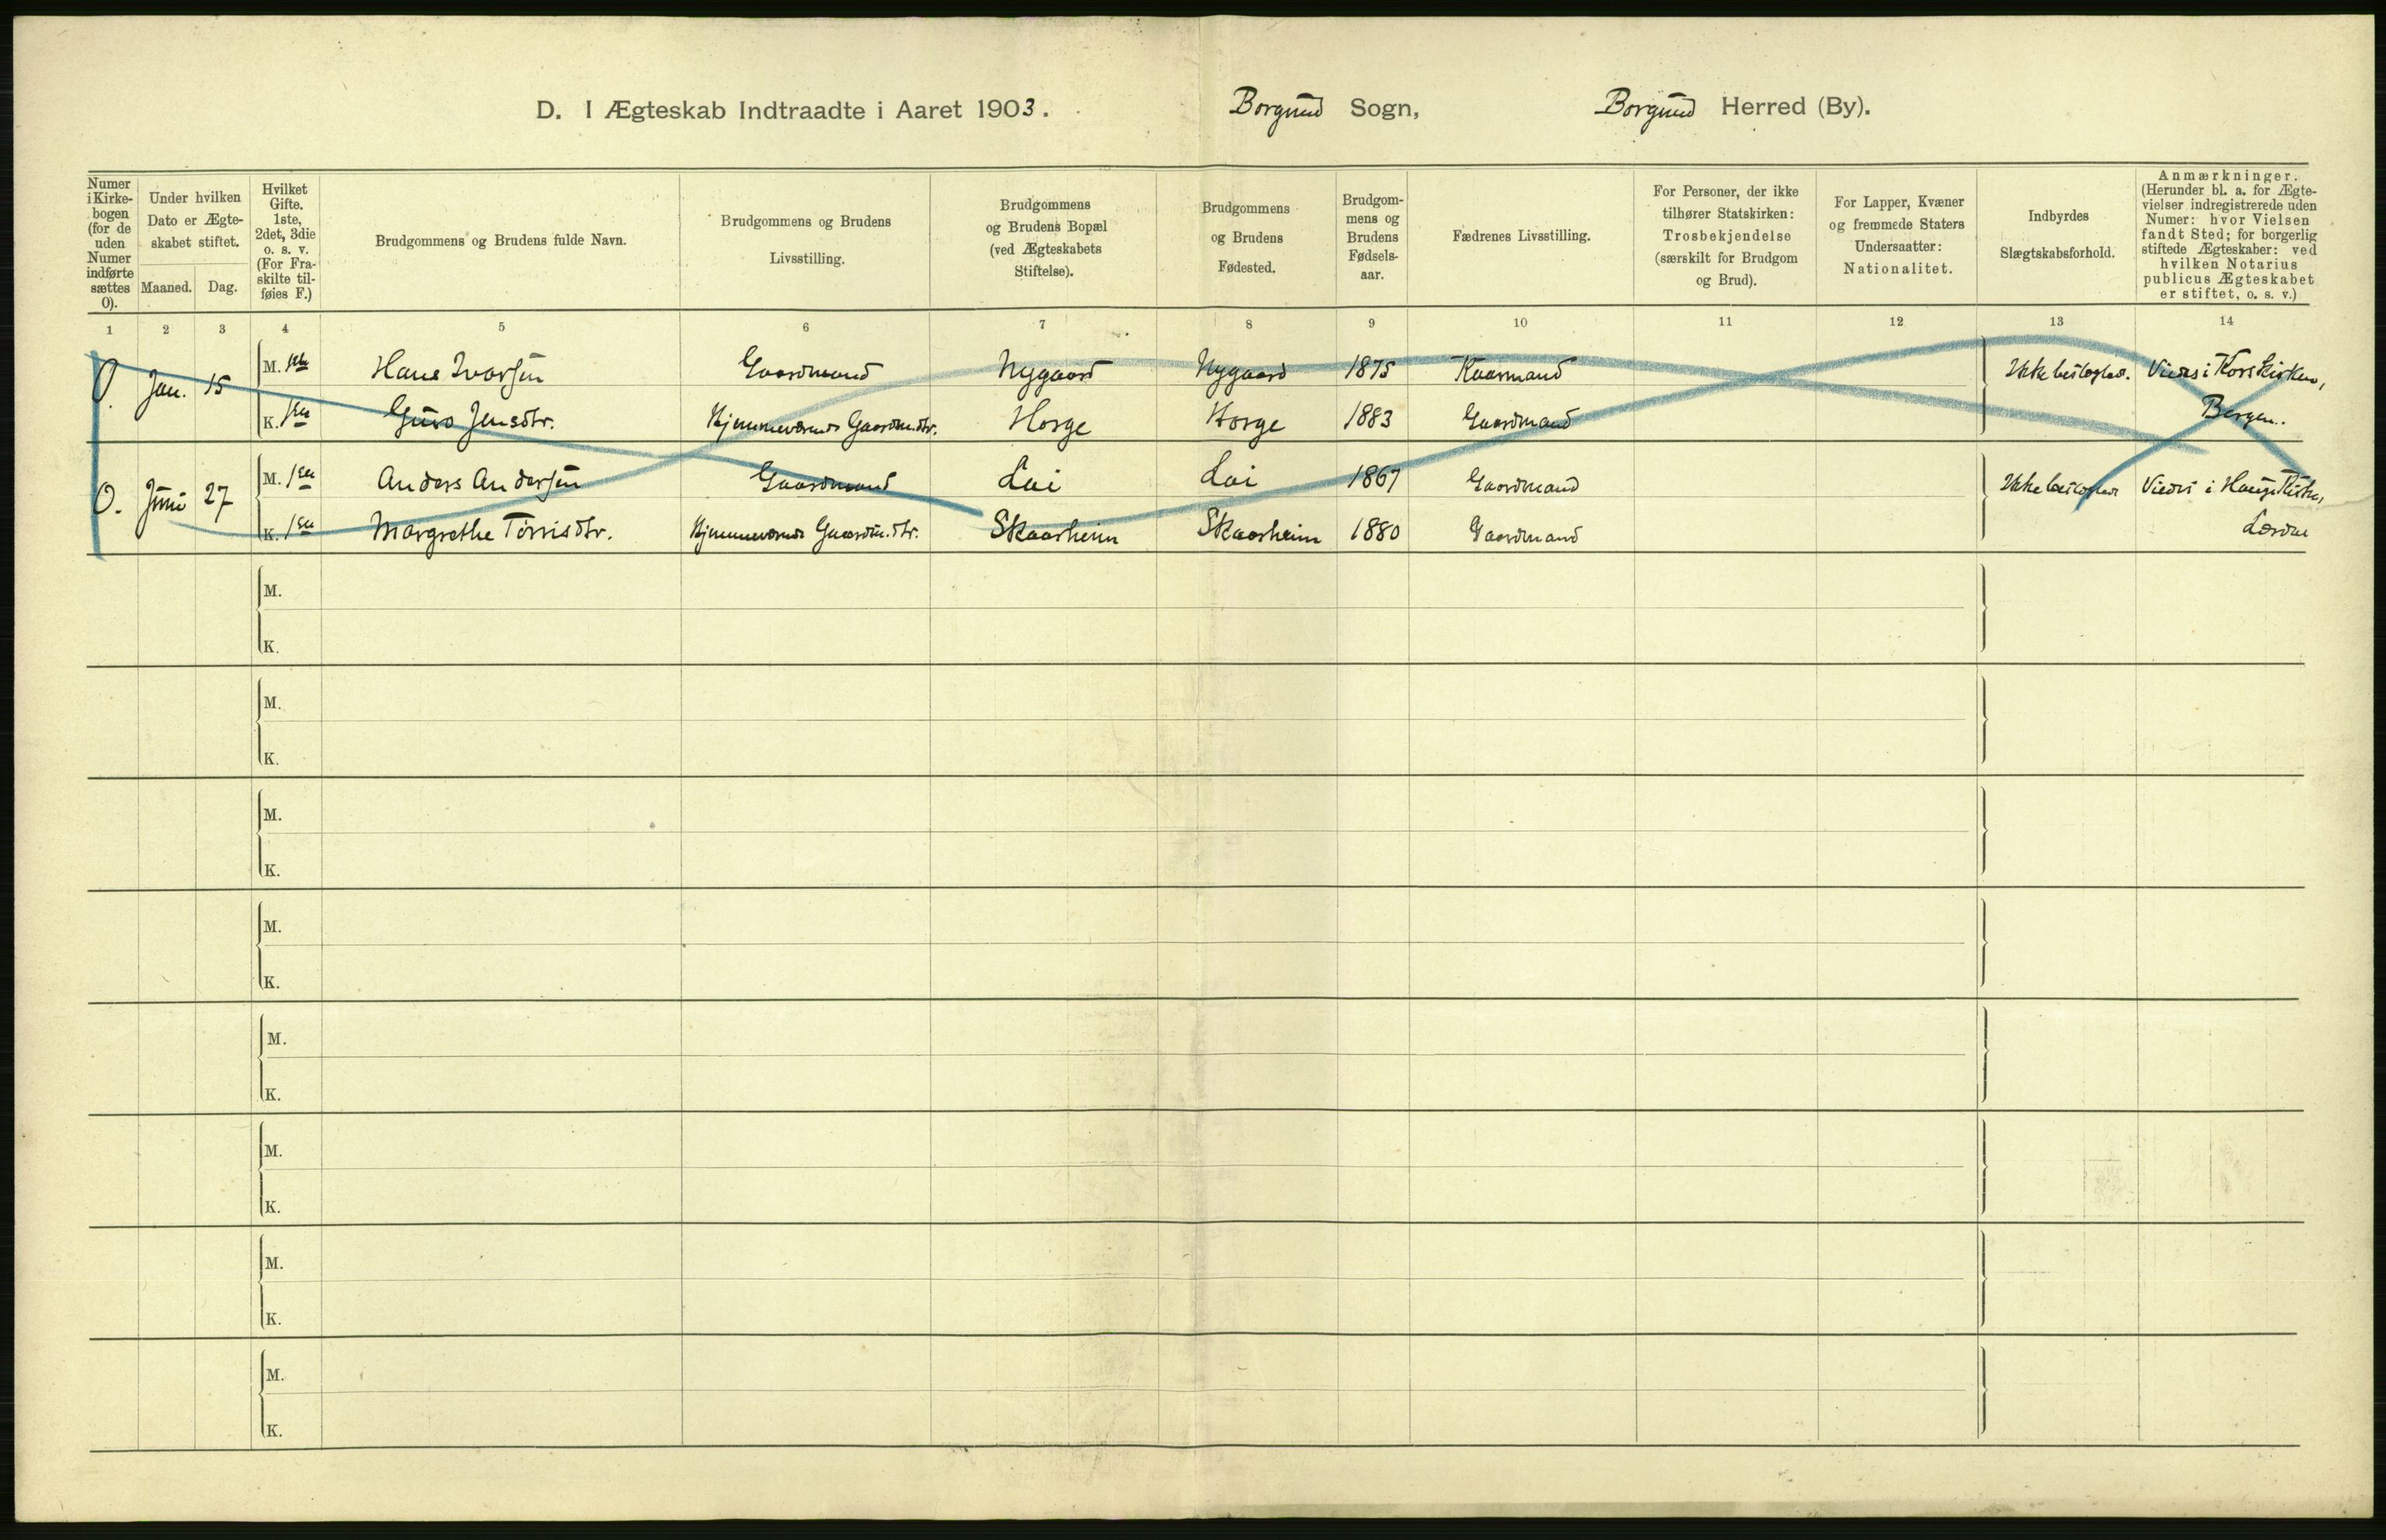 D. I Ægteskab Indtraadte i Aaret 1903. Borgund Sogn, Borgund Herred (By).
Numer i Kirke-bogen (for de uden Numer indførte sættes 0).
Under hvilken Dato er Ægte-skabet stiftet.
Maaned. Dag.
Hvilket Gifte. 1ste, 2det, 3die o. s. v. (For Fra-skilte til-føies F.)
Brudgommens og Brudens fulde Navn.
Brudgommens og Brudens Livsstilling.
Brudgommens og Brudens Bopæl (ved Ægteskabets Stiftelse).
Brudgommens og Brudens Fødested.
Brudgom-mens og Brudens Fødsels-aar.
Fædrenes Livsstilling.
For Personer, der ikke tilhører Statskirken: Trosbekjendelse (særskilt for Brudgom og Brud).
For Lapper, Kvæner og fremmede Staters Undersaatter: Nationalitet.
Indbyrdes Slægtskabsforhold.
Anmærkninger. (Herunder bl. a. for Ægte-vielser indregistrerede uden Numer: hvor Vielsen fandt Sted; for borgerlig stiftede Ægteskaber: ved hvilken Notarius publicus Ægteskabet er stiftet, o. s. v.)
1 2 3 4 5 6 7 8 9 10 11 12 13 14
0. Jan. 15 M. 1ste Hans Ivarsen Gaardmand Nygaard Nygaard 1875 Kaarmand Ikke beslægted. Viedes i Korskirken,
K. 1ste Guro Jensdtr. Hjemmeværende Gaardm.dtr. Horge Horge 1883 Gaardmand Bergen.
0. Juni 27 M. 1ste Anders Andersen Gaardmand Loi Loi 1867 Gaardmand Ikke beslægted Viedes i Hauge Kirke,
K. 1ste Margrethe Torrisdtr. Hjemmeværende Gaardm.dtr. Skaarheim Skaarheim 1880 Gaardmand Lærdal
M.
K.
M.
K.
M.
K.
M.
K.
M.
K.
M.
K.
M.
K.
M.
K.